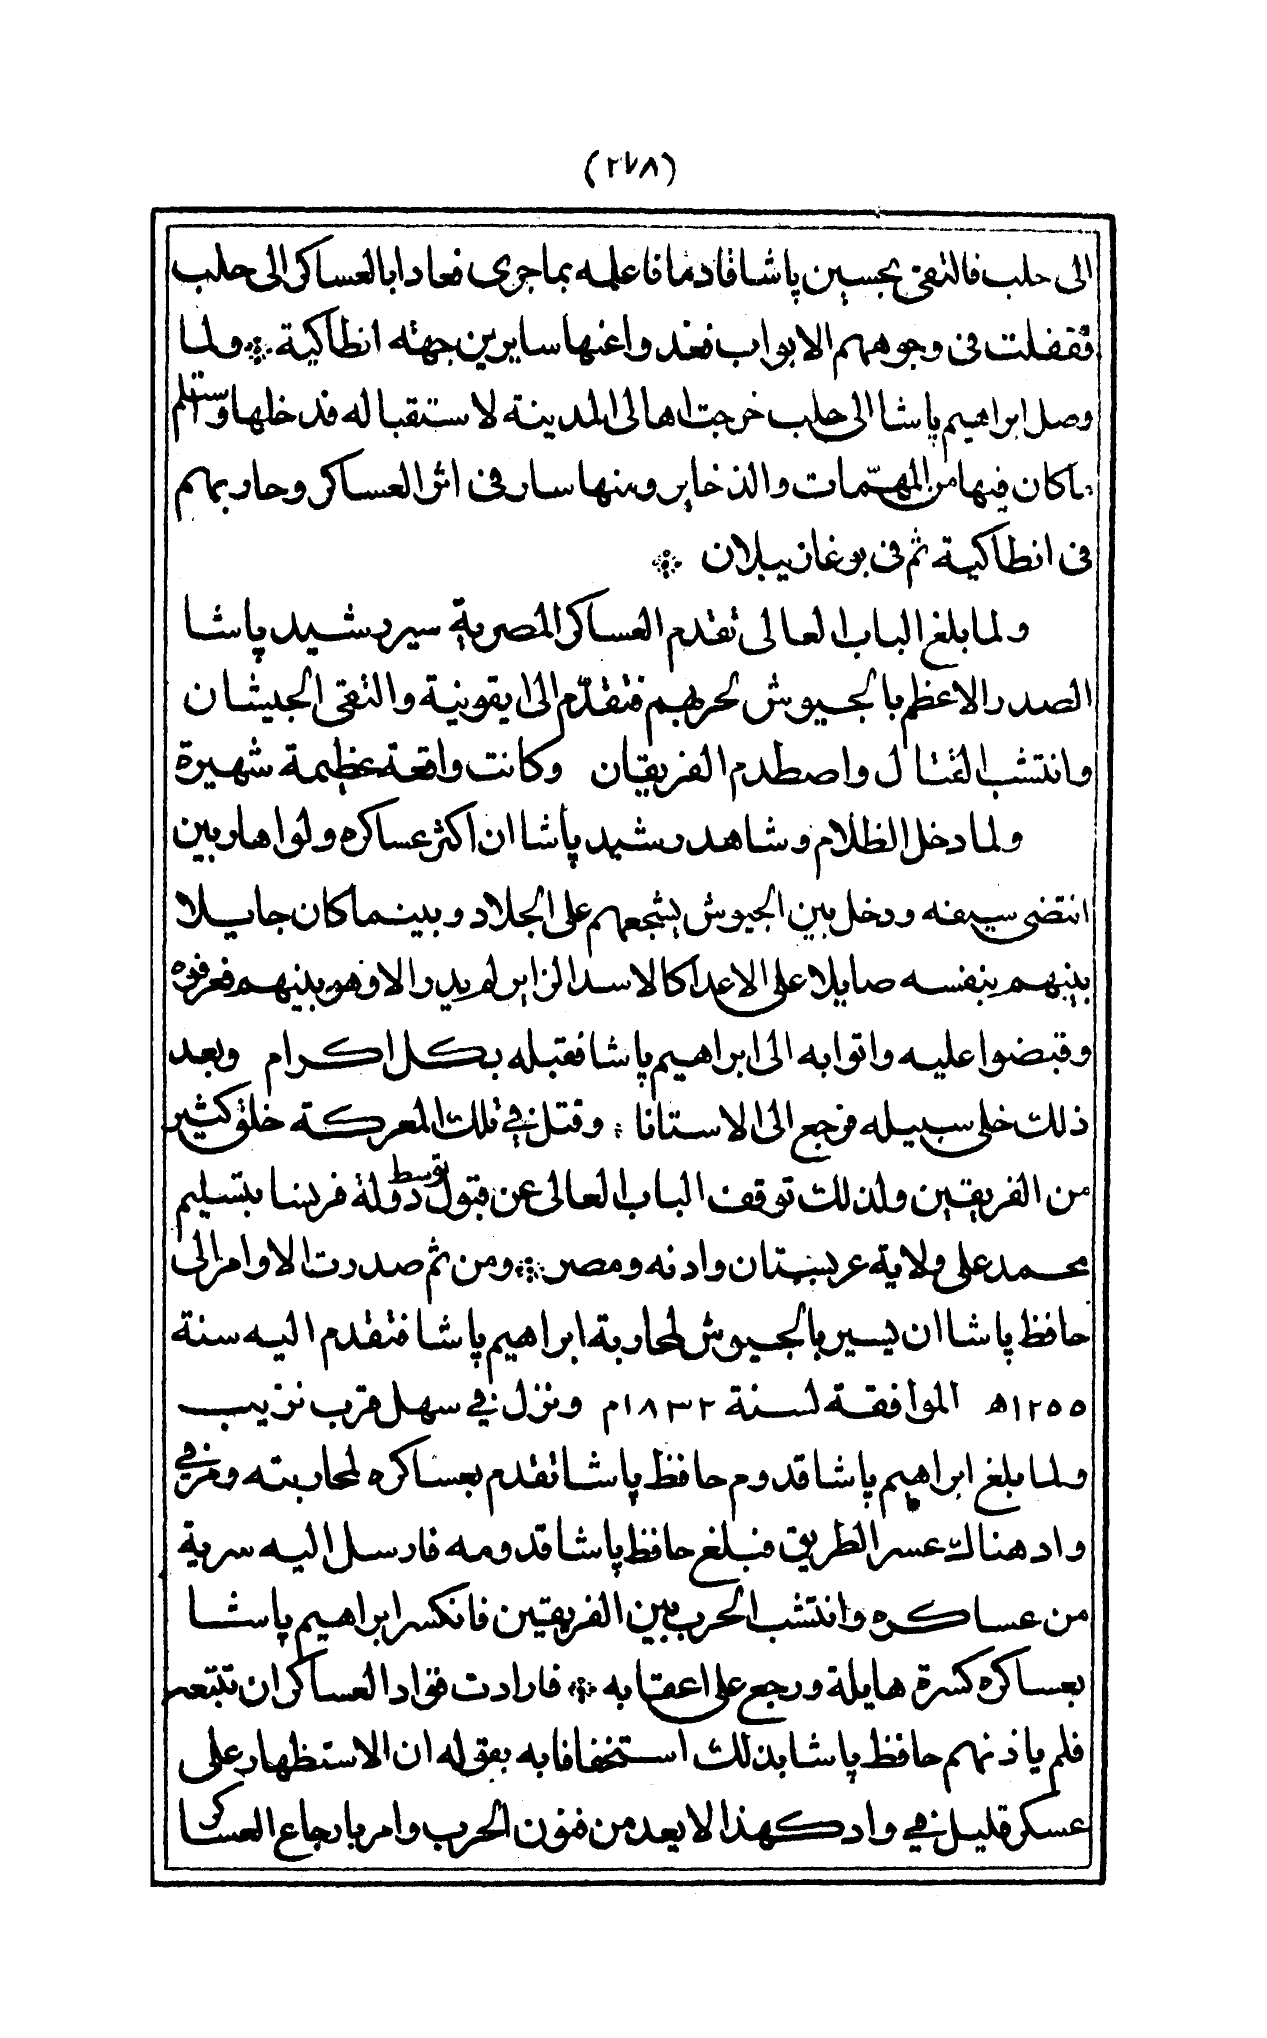 (٢٧٨)
الى حلب فالتقى بحسين پاشا قادما فاعلمه بما جرى فعادا بالعساكر الى حلب
فقفلت فى وجوههم الابواب فعدوا عنها سايرين جهته انطاكية ولما
وصل ابراهيم پاشا الى حلب خرجت اهالى المدينة لاستقباله فدخلها وستلم
ما كان فيها من المهمّات والذخاير ومنها سار فى اثر العساكر وحاربهم
فى انطاكية ثم فى بوغاز بيلان
ولما بلغ الباب العالى تقدم العساكر المصرية سير رشيد پاشا
الصدر الاعظم بالجيوش لحربهم فتقدّم الى ايقونية والتقى الجيشان
وانتشب القتال واصطدم الفريقان وكانت واقعة عظيمة شهيرة
ولما دخل الظلام وشاهد رشيد پاشا ان اكثر عساكره ولوا هاربين
انتضى سيفه ودخل بين الجيوش يشجعهم على الجلاد وبينما كان جايلا
بينهم بنفسه صايلا على الاعدا كالاسد الزاير لم يدر الا وهو بينهم فعرفوه
وقبضوا عليه واتوا به الى ابراهيم پاشا فقبله بكل اكرام وبعد
ذلك خلى سبيله فرجع الى الاستانا وقتل في تلك المعركة خلق كثير
من الفريقين ولذلك توقف الباب العالى عن قبول توسط دولة فرنسا بتسليم
محمد على ولاية عربستان وادنه ومصر ومن ثم صدرت الاوامر الى
حافظ پاشا ان يسير بالجيوش لمحاربة ابراهيم پاشا فتقدم اليه سنة
١٢٥٥ﻫ الموافقة لسنة ١٨٣٢م ونزل في سهل قرب نزيب
ولما بلغ ابراهيم پاشا قدوم حافظ پاشا تقدم بعساكره لمحاربته ومر في
واد هناك عسر الطريق فبلغ حافظ پاشا قدومه فارسل اليه سرية
من عساكره وانتشب الحرب بين الفريقين فانكسر ابراهيم پاشا
بعساكره كسرة هايلة ورجع على اعقابه فارادت قواد العساكر ان تتبعه
فلم ياذنهم حافظ پاشا بذلك استخفافا به بقوله ان الاستظهار على
عسكر قليل في واد كهذا لا يعد من فنون الحرب وامر بارجاع العساكر